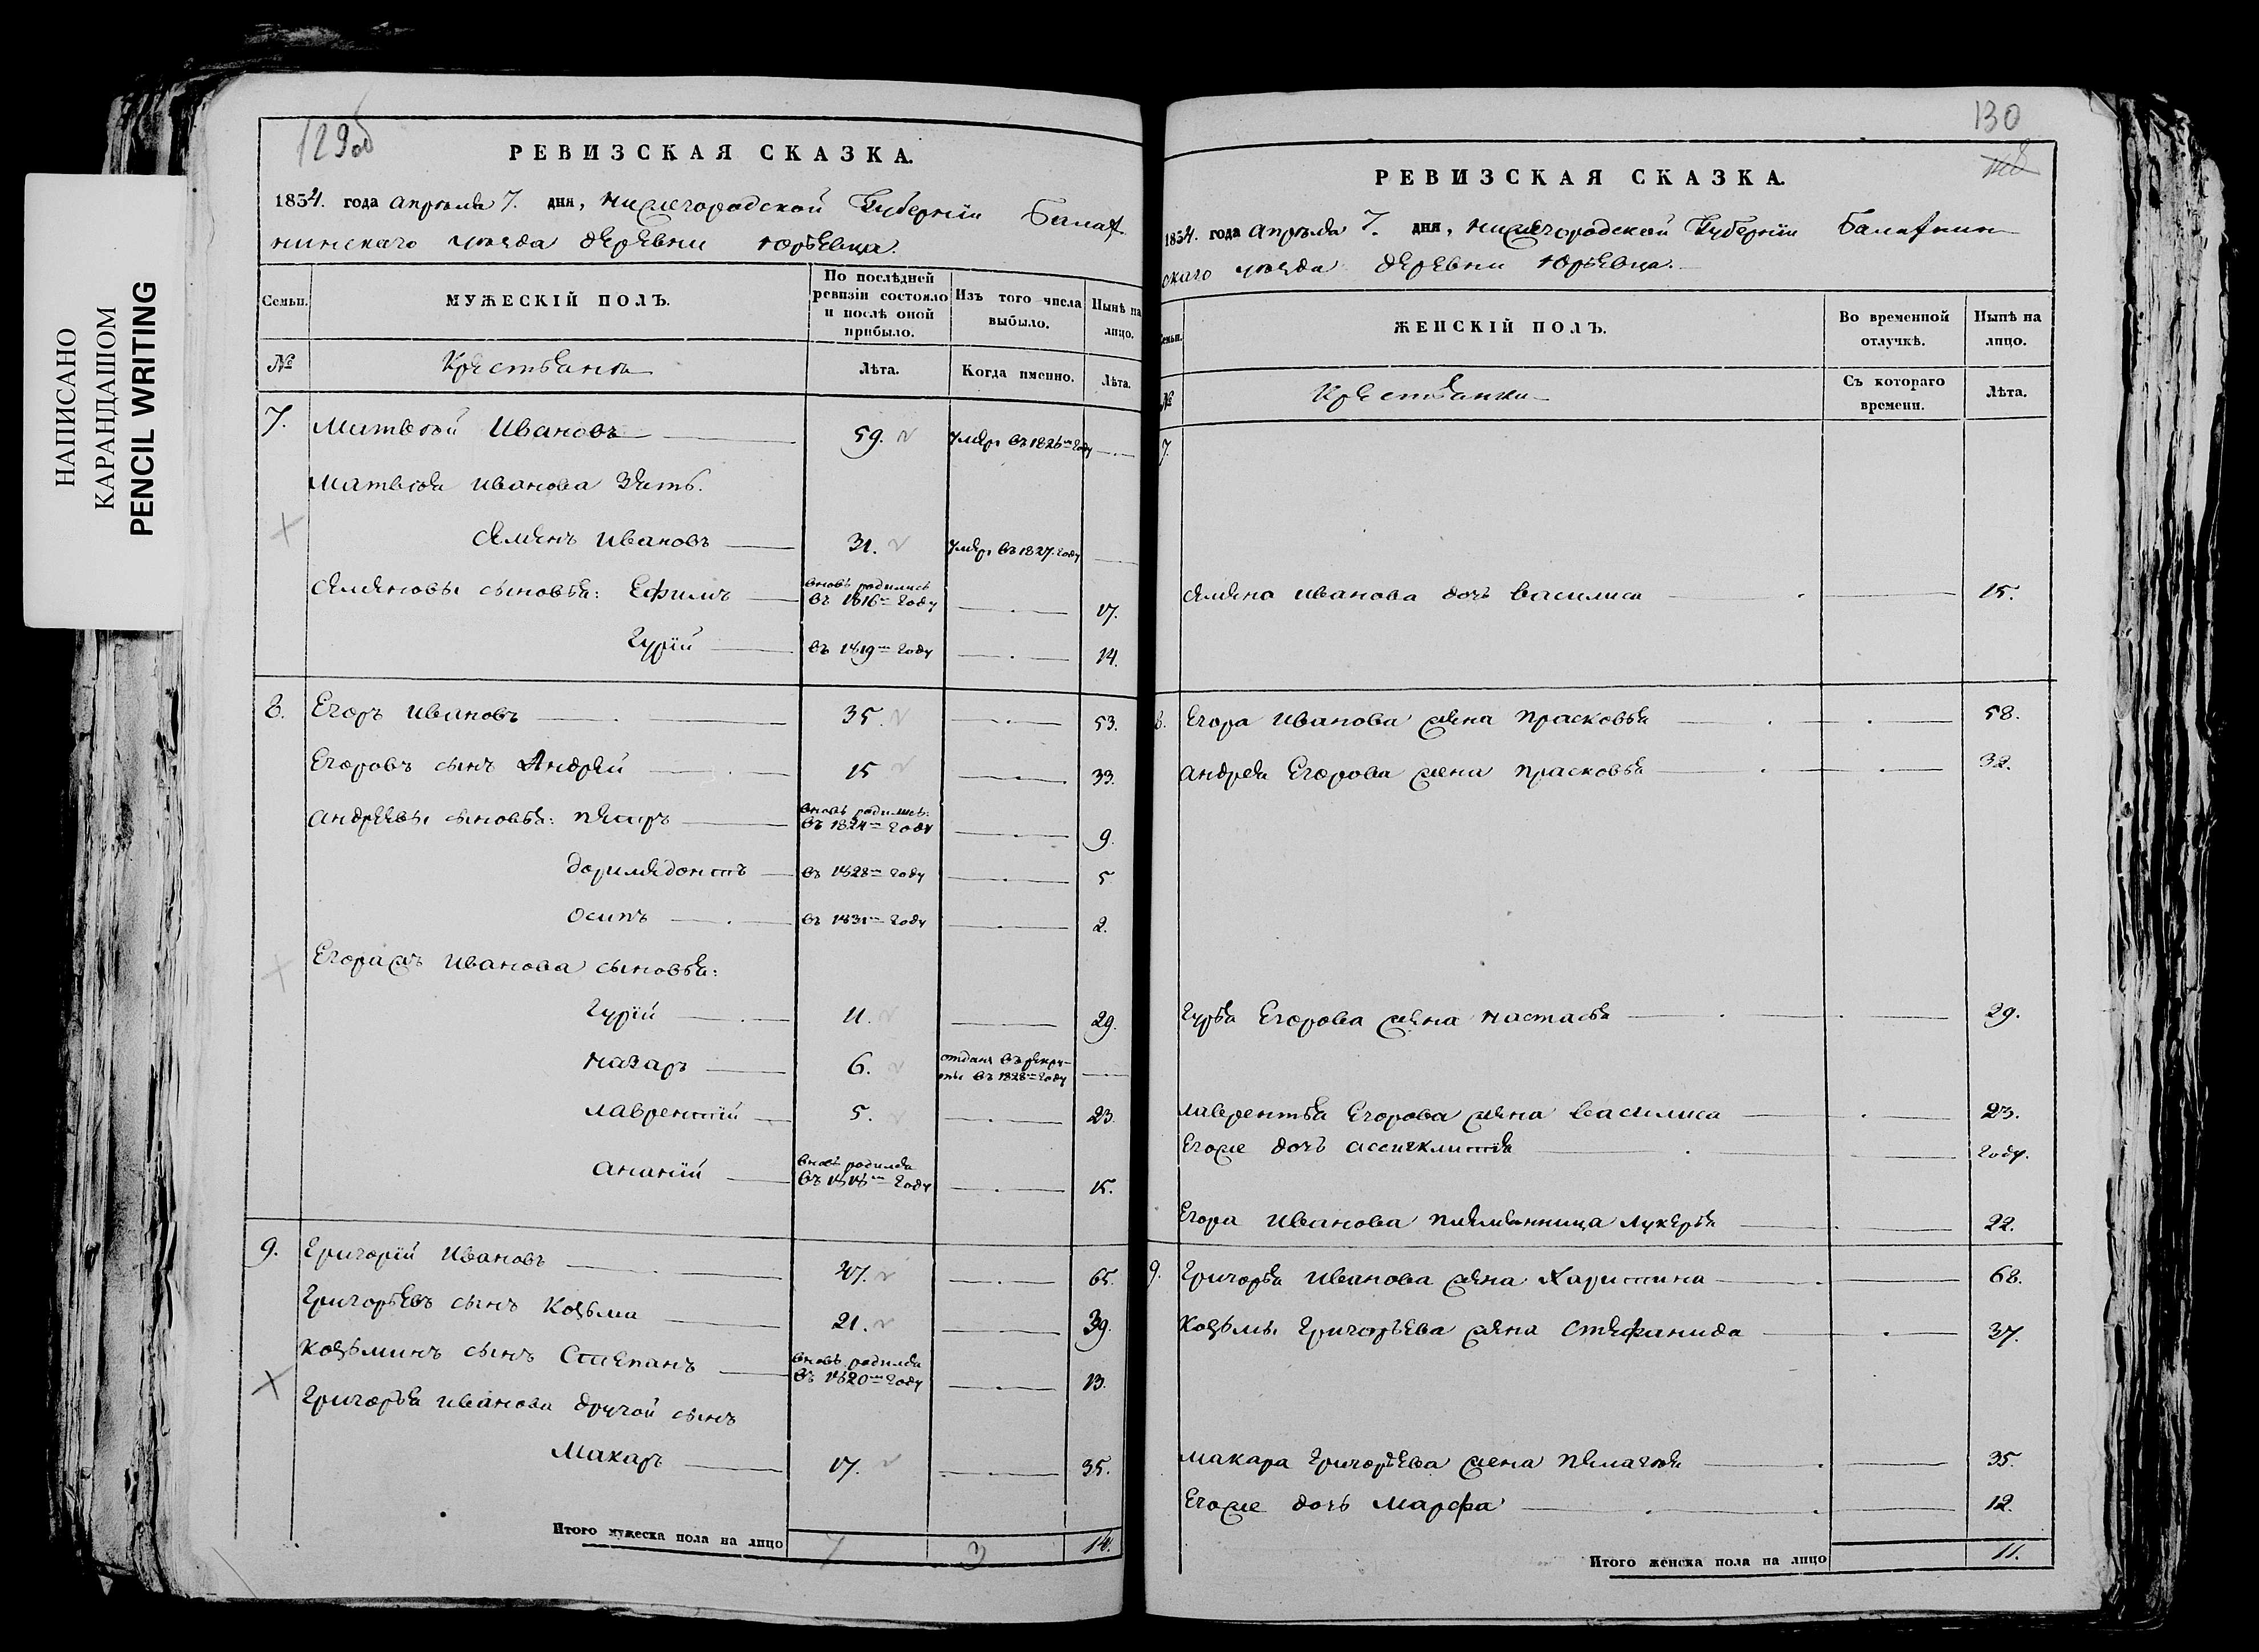 НАПИСАНО
КАРАНДАШОМ
PENCIL WRITING
129об
РЕВИЗСКАЯ СКАЗКА.
1834. года апрѣля 7. дня, Нижегородской Губернїи Балах
нинскаго уѣзда деревни Юрьевца.
Семьи.
МУЖЕСКІЙ ПОЛЪ.
По послѣдней ревизіи состояло и послѣ оной прибыло.
Изъ того числа выбыло.
Нынѣ на лицо.
№
Крестьяня
Лѣта.
Когда именно.
Лѣта.
7. Матвѣй Ивановъ 59. умер. въ 1826м году
Матвѣя Иванова зять.
Семенъ Ивановъ 31. умер. въ 1827. году
Семеновы сыновья: Ефимъ вновь родились въ 1816м году 17.
Гурїй въ 1819м году 14.
8. Егоръ Ивановъ 35. 53.
Егоровъ сынъ Андрей 15 33.
Андреевы сыновья: Петръ вновь родились: въ 1824м году 9.
Доримедонтъ въ 1828м году 5
Осипъ въ 1831м году 2.
Егора жъ Иванова сыновья:
Гурїй 11. 29.
Назаръ 6. отданъ въ рекруты въ 1828м году
Лаврентїй 5. 23.
Ананїй вновь родился въ 1818м году 15.
9. Григорїй Ивановъ 47. 65.
Григорьевъ сынъ Козьма 21. 39.
Козьминъ сынъ Степанъ вновь родился въ 1820м году 13.
Григорья Иванова другой сынъ
Макаръ 17. 35.
Итого мужеска пола на лицо 7 3 14.
130
РЕВИЗСКАЯ СКАЗКА.
1834. года апрѣля 7. дня, Нижегородской Губернїи Балахнин
скаго уѣзда деревни Юрьевца.
Семьи.
ЖЕНСКІЙ ПОЛЪ.
Во временной отлучкѣ.
Нынѣ на лицо.
№
Крестьянки
Съ котораго времени.
Лѣта.
7.
Семена Иванова дочь Василиса 15.
8. Егора Иванова жена Прасковья 58.
Андрея Егорова жена Прасковья 32.
Гурья Егорова жена Настасья 29.
Лаврентья Егорова жена Василиса 23.
Егоже дочь году.
Егора Иванова племянница Лукерья 22.
9. Григорья Иванова жена Харитина 68.
Козьмы Григорьева жена Стефанида 37.
Макара Григорьева жена Пелагея 35.
Егоже дочь Марфа 12.
Итого женска пола на лицо 11.